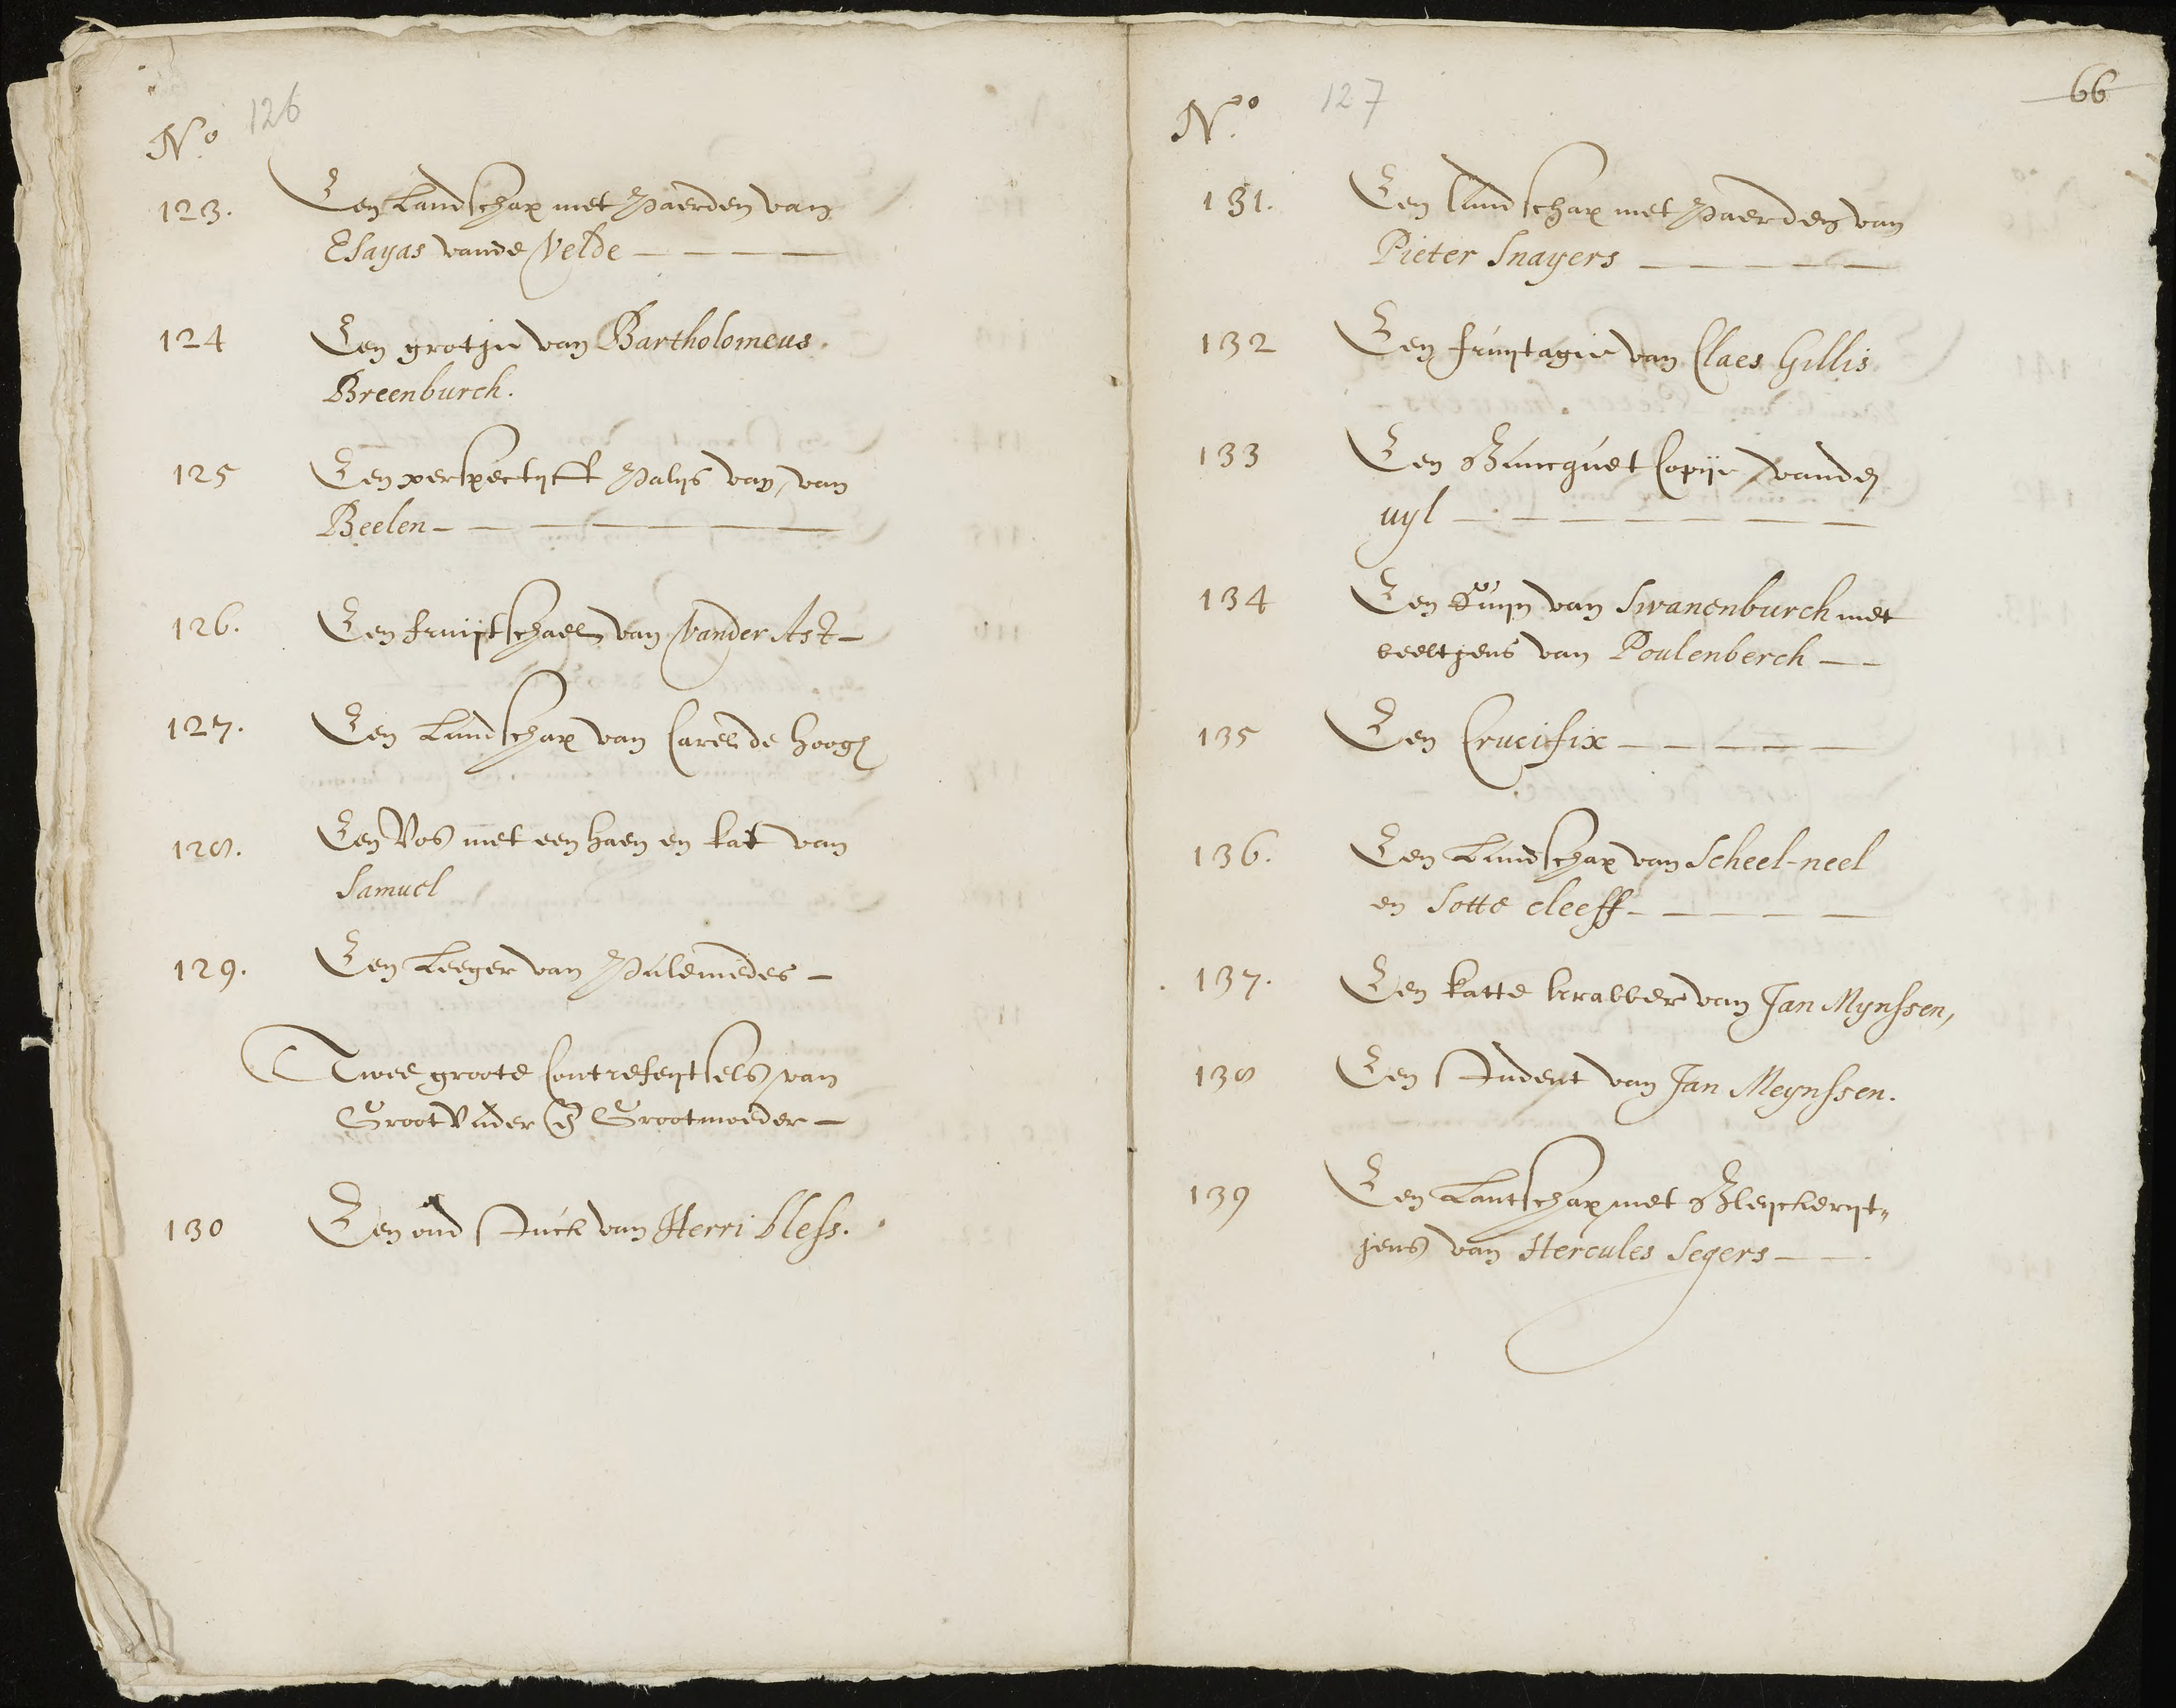 126
No
123. Een Landschap met Paerden van
Esayas vande Velde
124 Een grotje van Bartholomeus
Breenburch.
125 Een perspectyff Palys van, van
Beelen
126. Een fruytschael van Vander Ast
127. Een Landschap van Carel de hoogh
128. Een Vos met een haen en kat van
Samuel
129. Een Leeger van Palemedes
Twee groote Contrefeytsels van
GrootVader en Grootmoeder
130 Een oud stuck van Herri bless.
127
66
No
131. Een landschap met Paerden van
Pieter Snayers
132 Een fruytagie van Claes Gillis
133 Een Bancquet Copije vanden
uyl
134 Een Ruyn van Swanenburch met
beeltjens van Poulenberch
135 Een Crucifix
136. Een Landschap van Scheel-neel
en Sotte cleeff
137. Een katte krabber van Jan Mynssen,
138 Een Student van Jan Meynssen.
139 Een Lantschap met Bleyckeryt-
jens van Hercules Segers